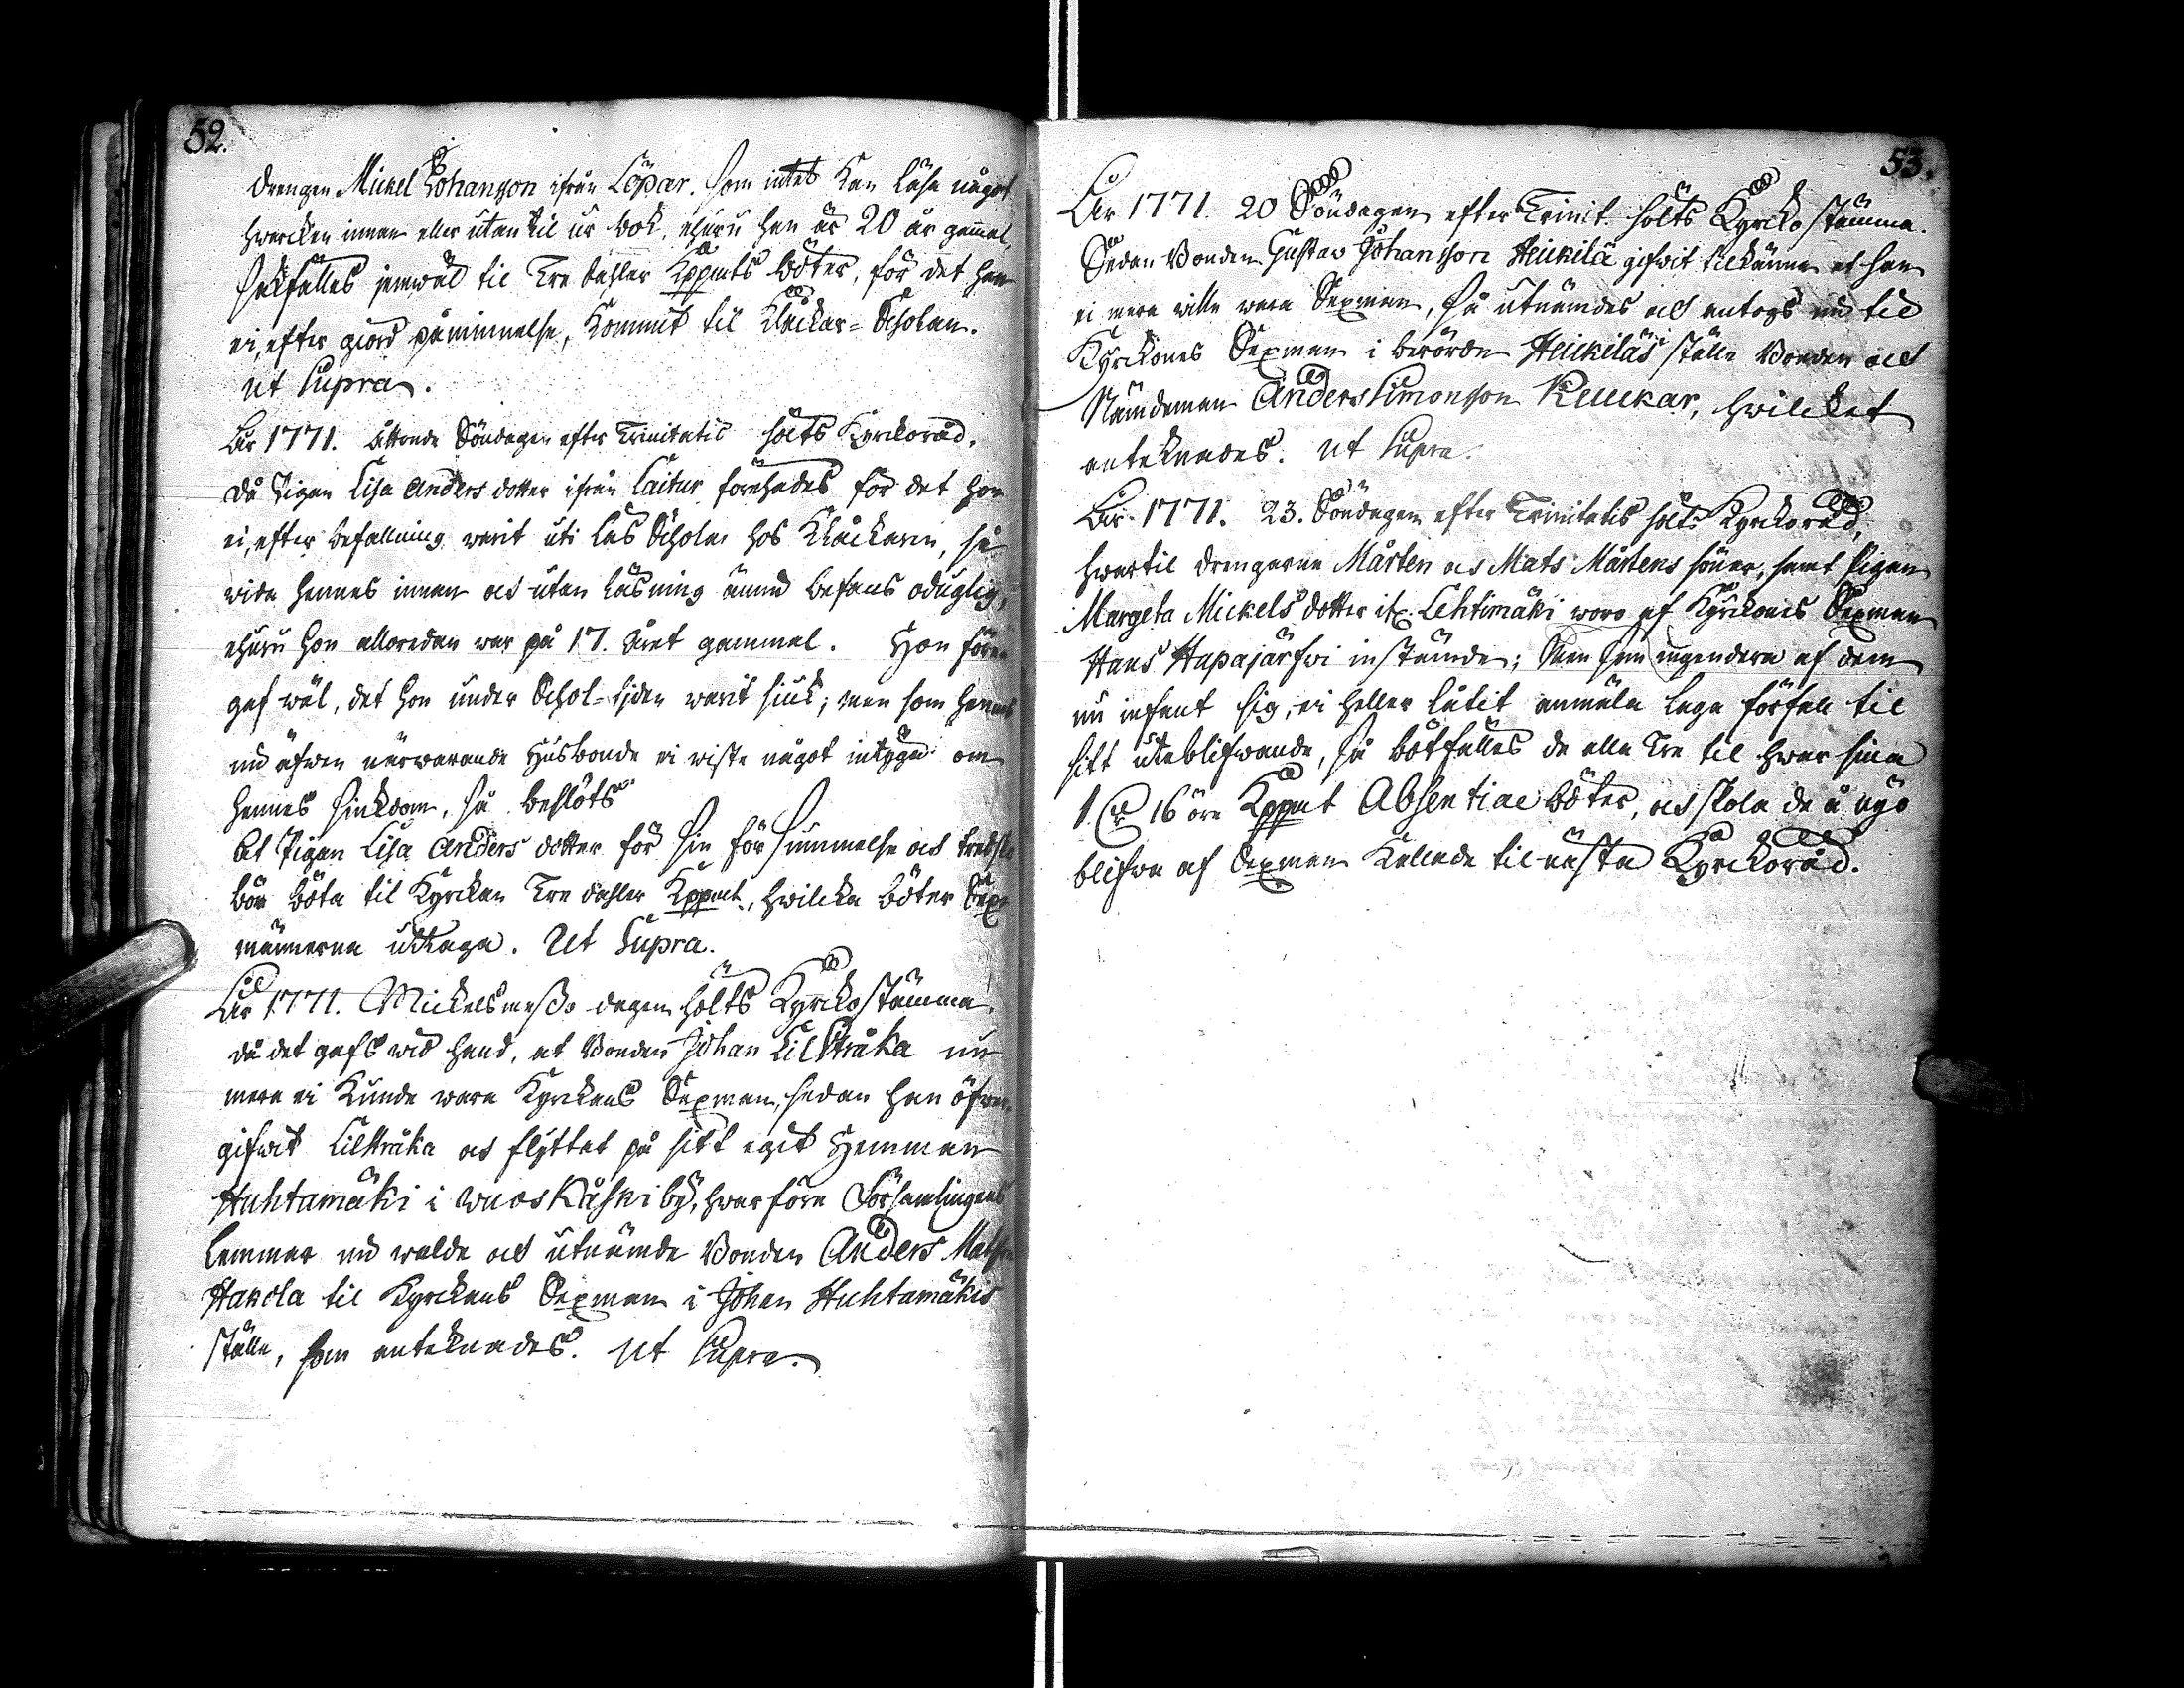 52.
Drengen Michel Johansson ifrån Löpar. som intet kan läsa något
hwarcken innan eller utan til ur bok, ehuru han är 20 år gammal,
sakfältes jemwäl til Tre daler Kppmts böter, för det han
ei, efter giord påminnelse, kommit til Klåckar-Scholan.
ut Supra.
År 1771. Ottonde Söndagen efter Trinitatis hölts Kyrckoråd.
då Pigan Lisa Anders dotter ifrån Laitur förehades för det hon
ei, efter befallning warit uti Läs Scholan hos Klåckaren, så
wida hennes innan och utan läsning ännu befans oduglig,
ehuru hon alloredan war på 17. året gammal. Hon före-
gaf wäl, det hon under Schol-tiden warit siuk; men som hennes
nu äfwen närwarande Husbonde ei wiste något intyga om
hennes siukdom, så beslöts
At Pigan Lisa Anders dotter för sin försummelse och
bör böta til Kyrckan Tre daler Kppmt, hwilcka böter Sex-
männerna uttaga. Ut Supra.
År 1771. Mickelsmesso dagen hölts Kyrckostämma.
då det gafs wid hand, at Bonden Johan Lillstråka nu
mera ei kunde wara Kyrckans Sexman, sedan han öfwer-
gifwit Lillstråka och flyttat på sitt eget Hemman
Huhtamäki i Wuoskåski by, hwarföre Församlingens
Lemmar nu walde och utnämde Bonden Anders Matsson
Hakola til Kyrckans Sexman i Johan Huhtamäkis
ställe, som anteknades. ut Supra.
53.
År 1771. 20 Söndagen efter Trinit. hölts Kyrckostämma.
Sedan Bonden Gustav Johansson Heickilä gifwit tilkänna at han
ei mera wille wara Sexman, så utnämdes och antogs nu til
Kyrckones Sexman i berörde Heickiläs ställe Bonden och
Nämdeman Anders Simonsson Keuckar, hwilcket
anteknades. ut Supra.
År 1771. 23. Söndagen efter Trinitatis hölts Kyrckoråd,
hwartil drengarne Mårten och Mats Mårtens söner, samt Pigan
Margeta Mickels dotter Lehtimäki woro af Kyrckones Sexman
Hans Hapajärfwi instämde; Men som ingendera af dem
nu infant sig, ei heller låtit anmäla laga förfall til
sitt uteblifwande, så bötfältes de alla Tre til hwar sina
1 16 öre Kppmt Absentiae böter, och skola de å nyo
blifwa af Sexman kallade til nästa Kyrckoråd.